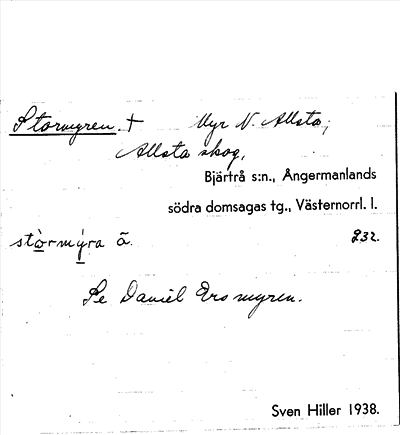 Stormyren. † Myr N. Allsta,
Allsta skog,
Bjärtrå s:n., Ångermanlands
södra domsagas tg., Västernorrl. l.
stòrmýra ã. 232.
Se Daniel Ersmyren.
Sven Hiller 1938.